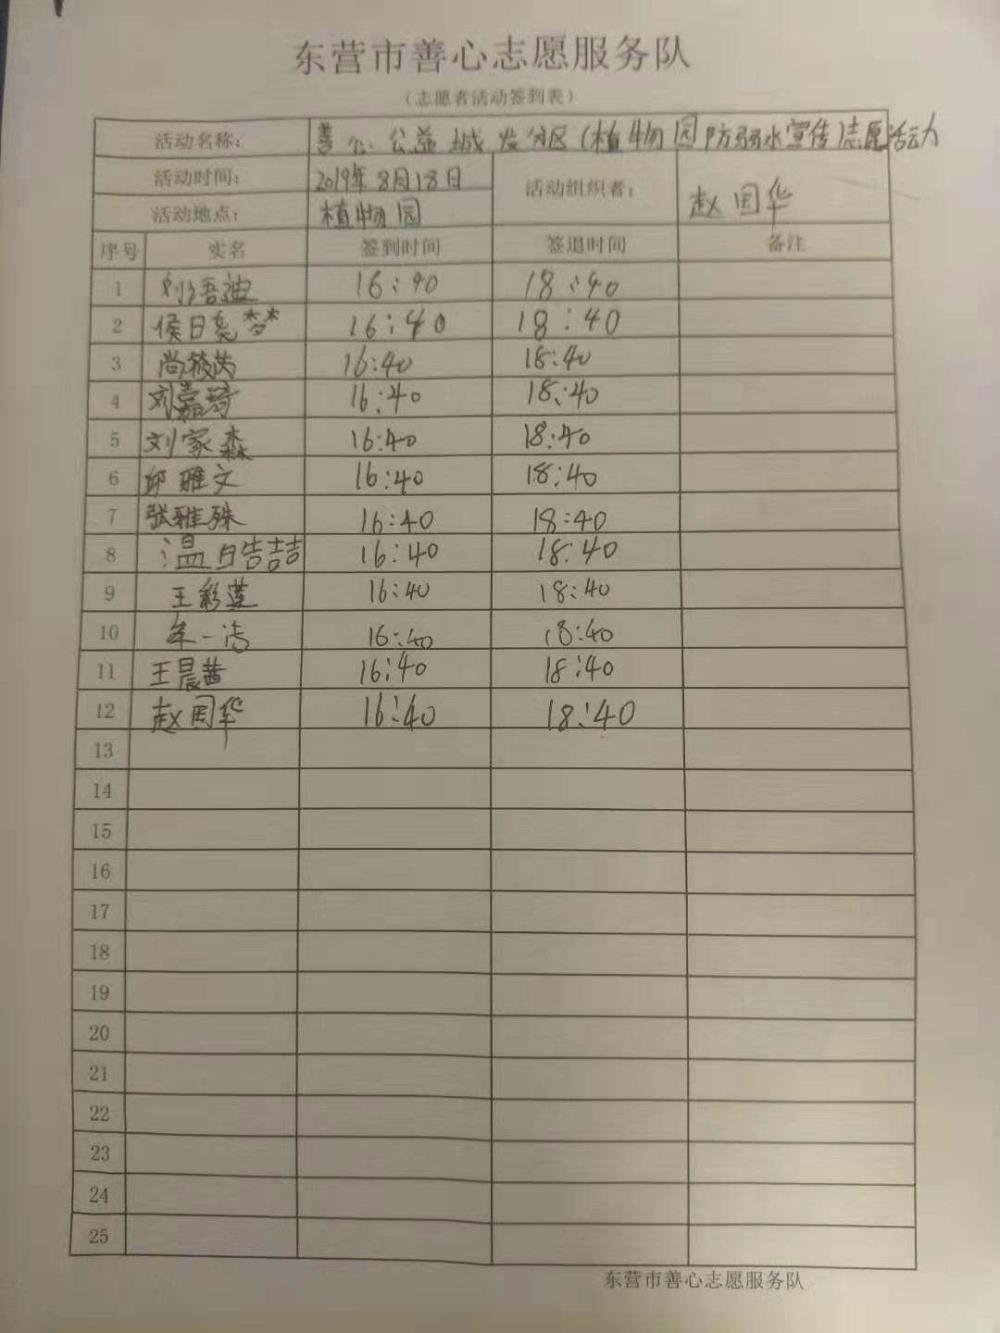 东营市善心志愿服务队
（志愿者活动签到表）
活动名称： 善心公益城发分区（植物园防溺水宣传）志愿活动
活动时间： 2019年8月18日 活动组织者： 赵国华
活动地点： 植物园
序号 实名 签到时间 签退时间 备注
1 刘语迪 16:40 18:40
2 侯日亮 16:40 18:40
3 尚筱芮 16:40 18:40
4 刘嘉琦 16:40 18:40
5 刘家森 16:40 18:40
6 邱雅文 16:40 18:40
7 张雅殊 16:40 18:40
8 温皓喆 16:40 18:40
9 王彩莲 16:40 18:40
10 一洁 16:40 18:40
11 王晨茜 16:40 18:40
12 赵国华 16:40 18:40
13
14
15
16
17
18
19
20
21
22
23
24
25
东营市善心志愿服务队